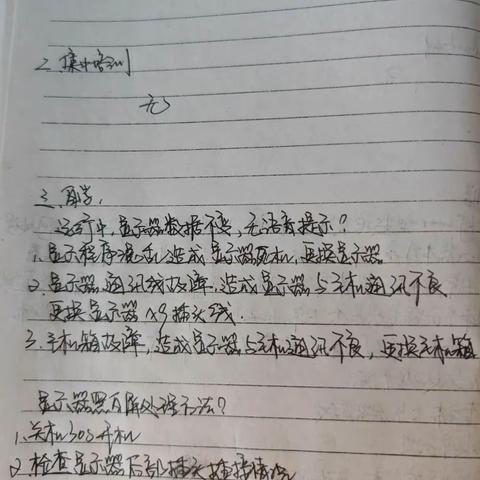 2、集中培训
无
三、自学、
运行中,显示器数据不变,无语音提示?
1、显示程序混乱造成显示器死机,更换显示器
2、显示器通讯线故障,造成显示器与主机通讯不良
更换显示器X9插头线.
3、主机箱故障,造成显示器与主机通讯不良,更换主机箱
显示器黑屏处理方法?
1、关机30S开机
2、检查显示器后部插头连接情况